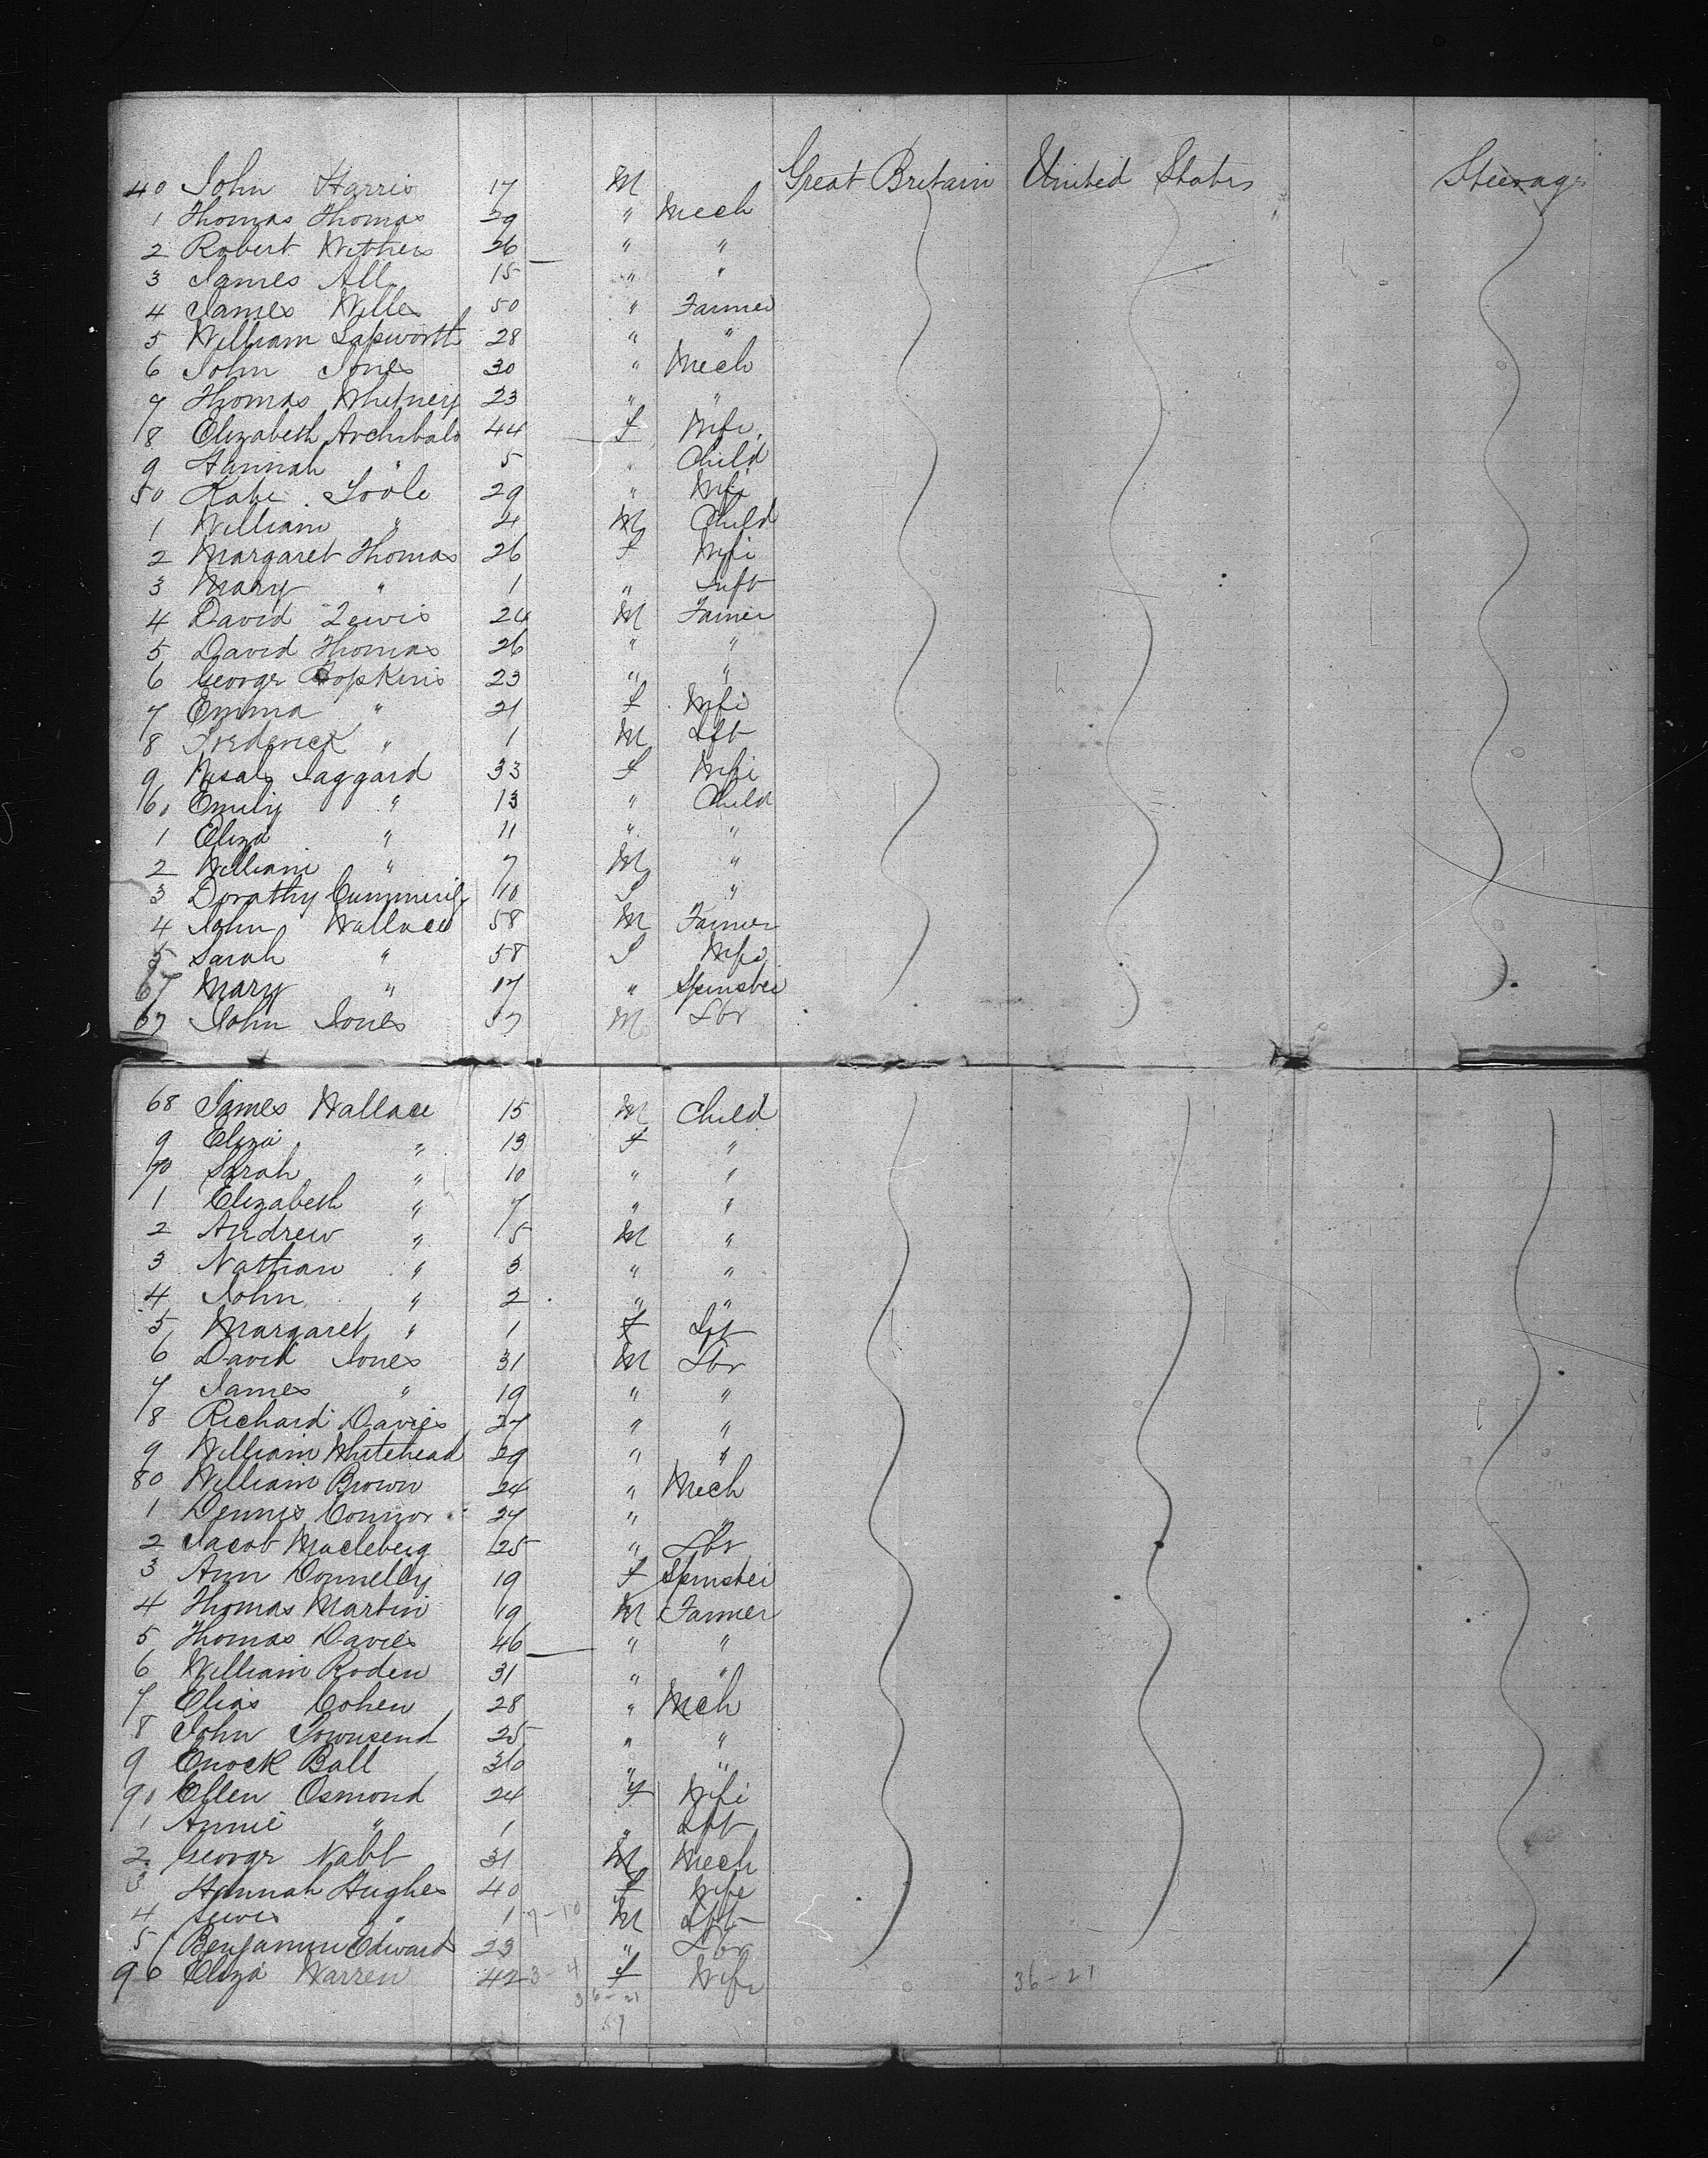 40 John Harris 17 M Great Britain United States Steerage
1 Thomas Thomas 29 " Mech
2 Robert Withers 26 " "
3 James All 15 " "
4 James Wills 50 " Farmer
5 William Lapworth 28 " "
6 John Jones 30 " Mech
7 Thomas Whitney 23 " "
8 Elizabeth Archibald 44 F Wife
9 Hannah " 5 " Child
50 Kate Toole 29 " Wife
1 William " 4 M Child
2 Margaret Thomas 26 F Wife
3 Mary " 1 " Inft
4 David Lewis 24 M Farmer
5 David Thomas 26 " "
6 George Hopkins 23 " "
7 Emma " 21 F Wife
8 Frederick " 1 M Ift
9 Jaggard 33 F Wife
60 Emily " 13 " Child
1 Eliza " 11 " "
2 William " 7 M "
3 Dorathy 10 F "
4 John Wallace 58 M Farmer
5 Sarah " 58 F Wife
67 Mary " 17 " Spinster
67 John Jones 57 M Lbr
68 James Wallace 15 M Child
9 Eliza " 13 F "
70 Sarah " 10 " "
1 Elizabeth " 7 " "
2 Andrew " 5 M "
3 Nathan " 3 " "
4 John " 2 " "
5 Margaret " 1 F Ift
6 David Jones 31 M Lbr
7 James " 19 " "
8 Richard Davies 27 " "
9 William Whitehead 29 " "
80 William Brown 24 " Mech
1 Dennis Connor 27 " "
2 Jacob Mucleberg 25 " Lbr
3 Ann Donnelly 19 F Spinster
4 Thomas Martin 19 M Farmer
5 Thomas Davies 46 " "
6 William Roden 31 " "
7 Elias Cohen 28 " Mch
8 John Townsend 25 " "
9 Enock Ball 30 " "
90 Ellen Osmond 24 F Wife
1 Annie " 1 " Ift
2 George Nabb 31 M Mech
3 Hannah Hughes 40 F Wife
4 Lewis " 1 7-10 M Ift
5 Benjamin Edwards 23 " Lbr
96 Eliza Warren 42 3-4 F Wife 36-21
36-21
57